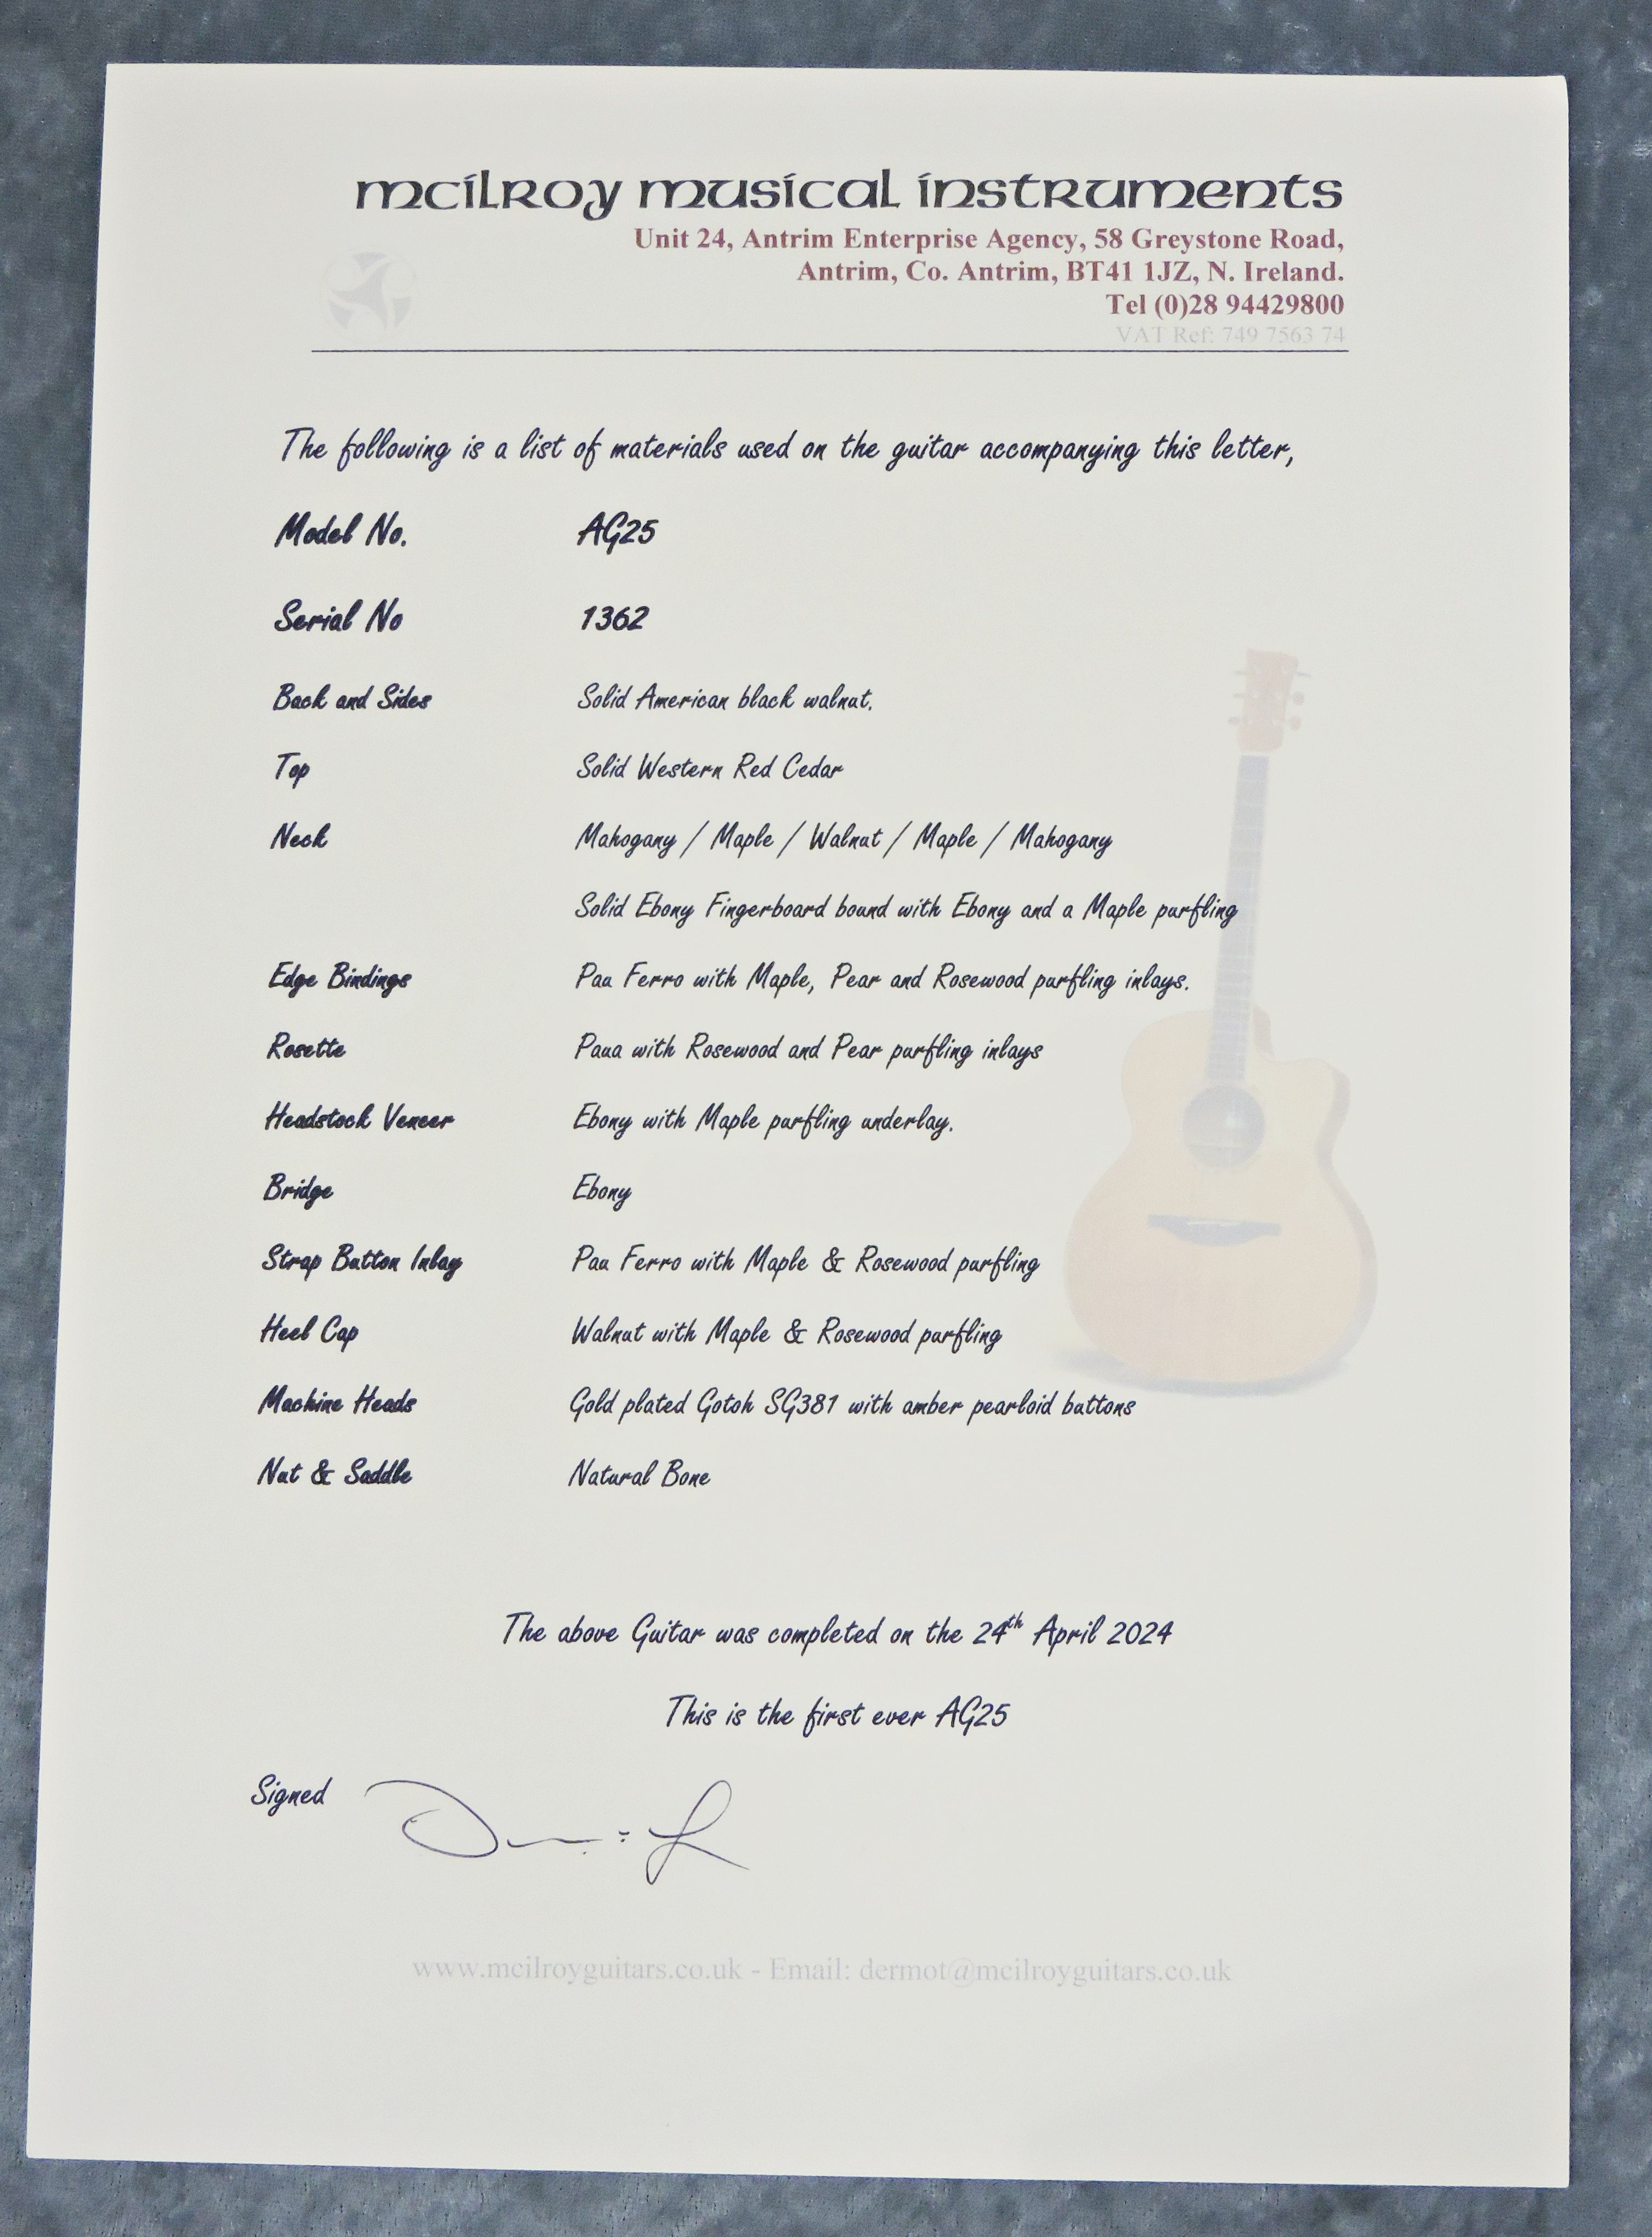 mcilroy musical instruments
Unit 24, Antrim Enterprise Agency, 58 Greystone Road,
Antrim, Co. Antrim, BT41 1JZ, N. Ireland.
Tel (0)28 94429800
VAT Ref: 749 7563 74
The following is a list of materials used on the guitar accompanying this letter,
Model No. AG25
Serial No 1362
Back and Sides Solid American black walnut.
Top Solid Western Red Cedar
Neck Mahogany / Maple / Walnut / Maple / Mahogany
Solid Ebony Fingerboard bound with Ebony and a Maple purfling
Edge Bindings Pau Ferro with Maple, Pear and Rosewood purfling inlays.
Rosette Paua with Rosewood and Pear purfling inlays
Headstock Veneer Ebony with Maple purfling underlay.
Bridge Ebony
Strap Button Inlay Pau Ferro with Maple & Rosewood purfling
Heel Cap Walnut with Maple & Rosewood purfling
Machine Heads Gold plated Gotoh SG381 with amber pearloid buttons
Nut & Saddle Natural Bone
The above Guitar was completed on the 24th April 2024
This is the first ever AG25
Signed
www.mcilroyguitars.co.uk - Email: dermot@mcilroyguitars.co.uk